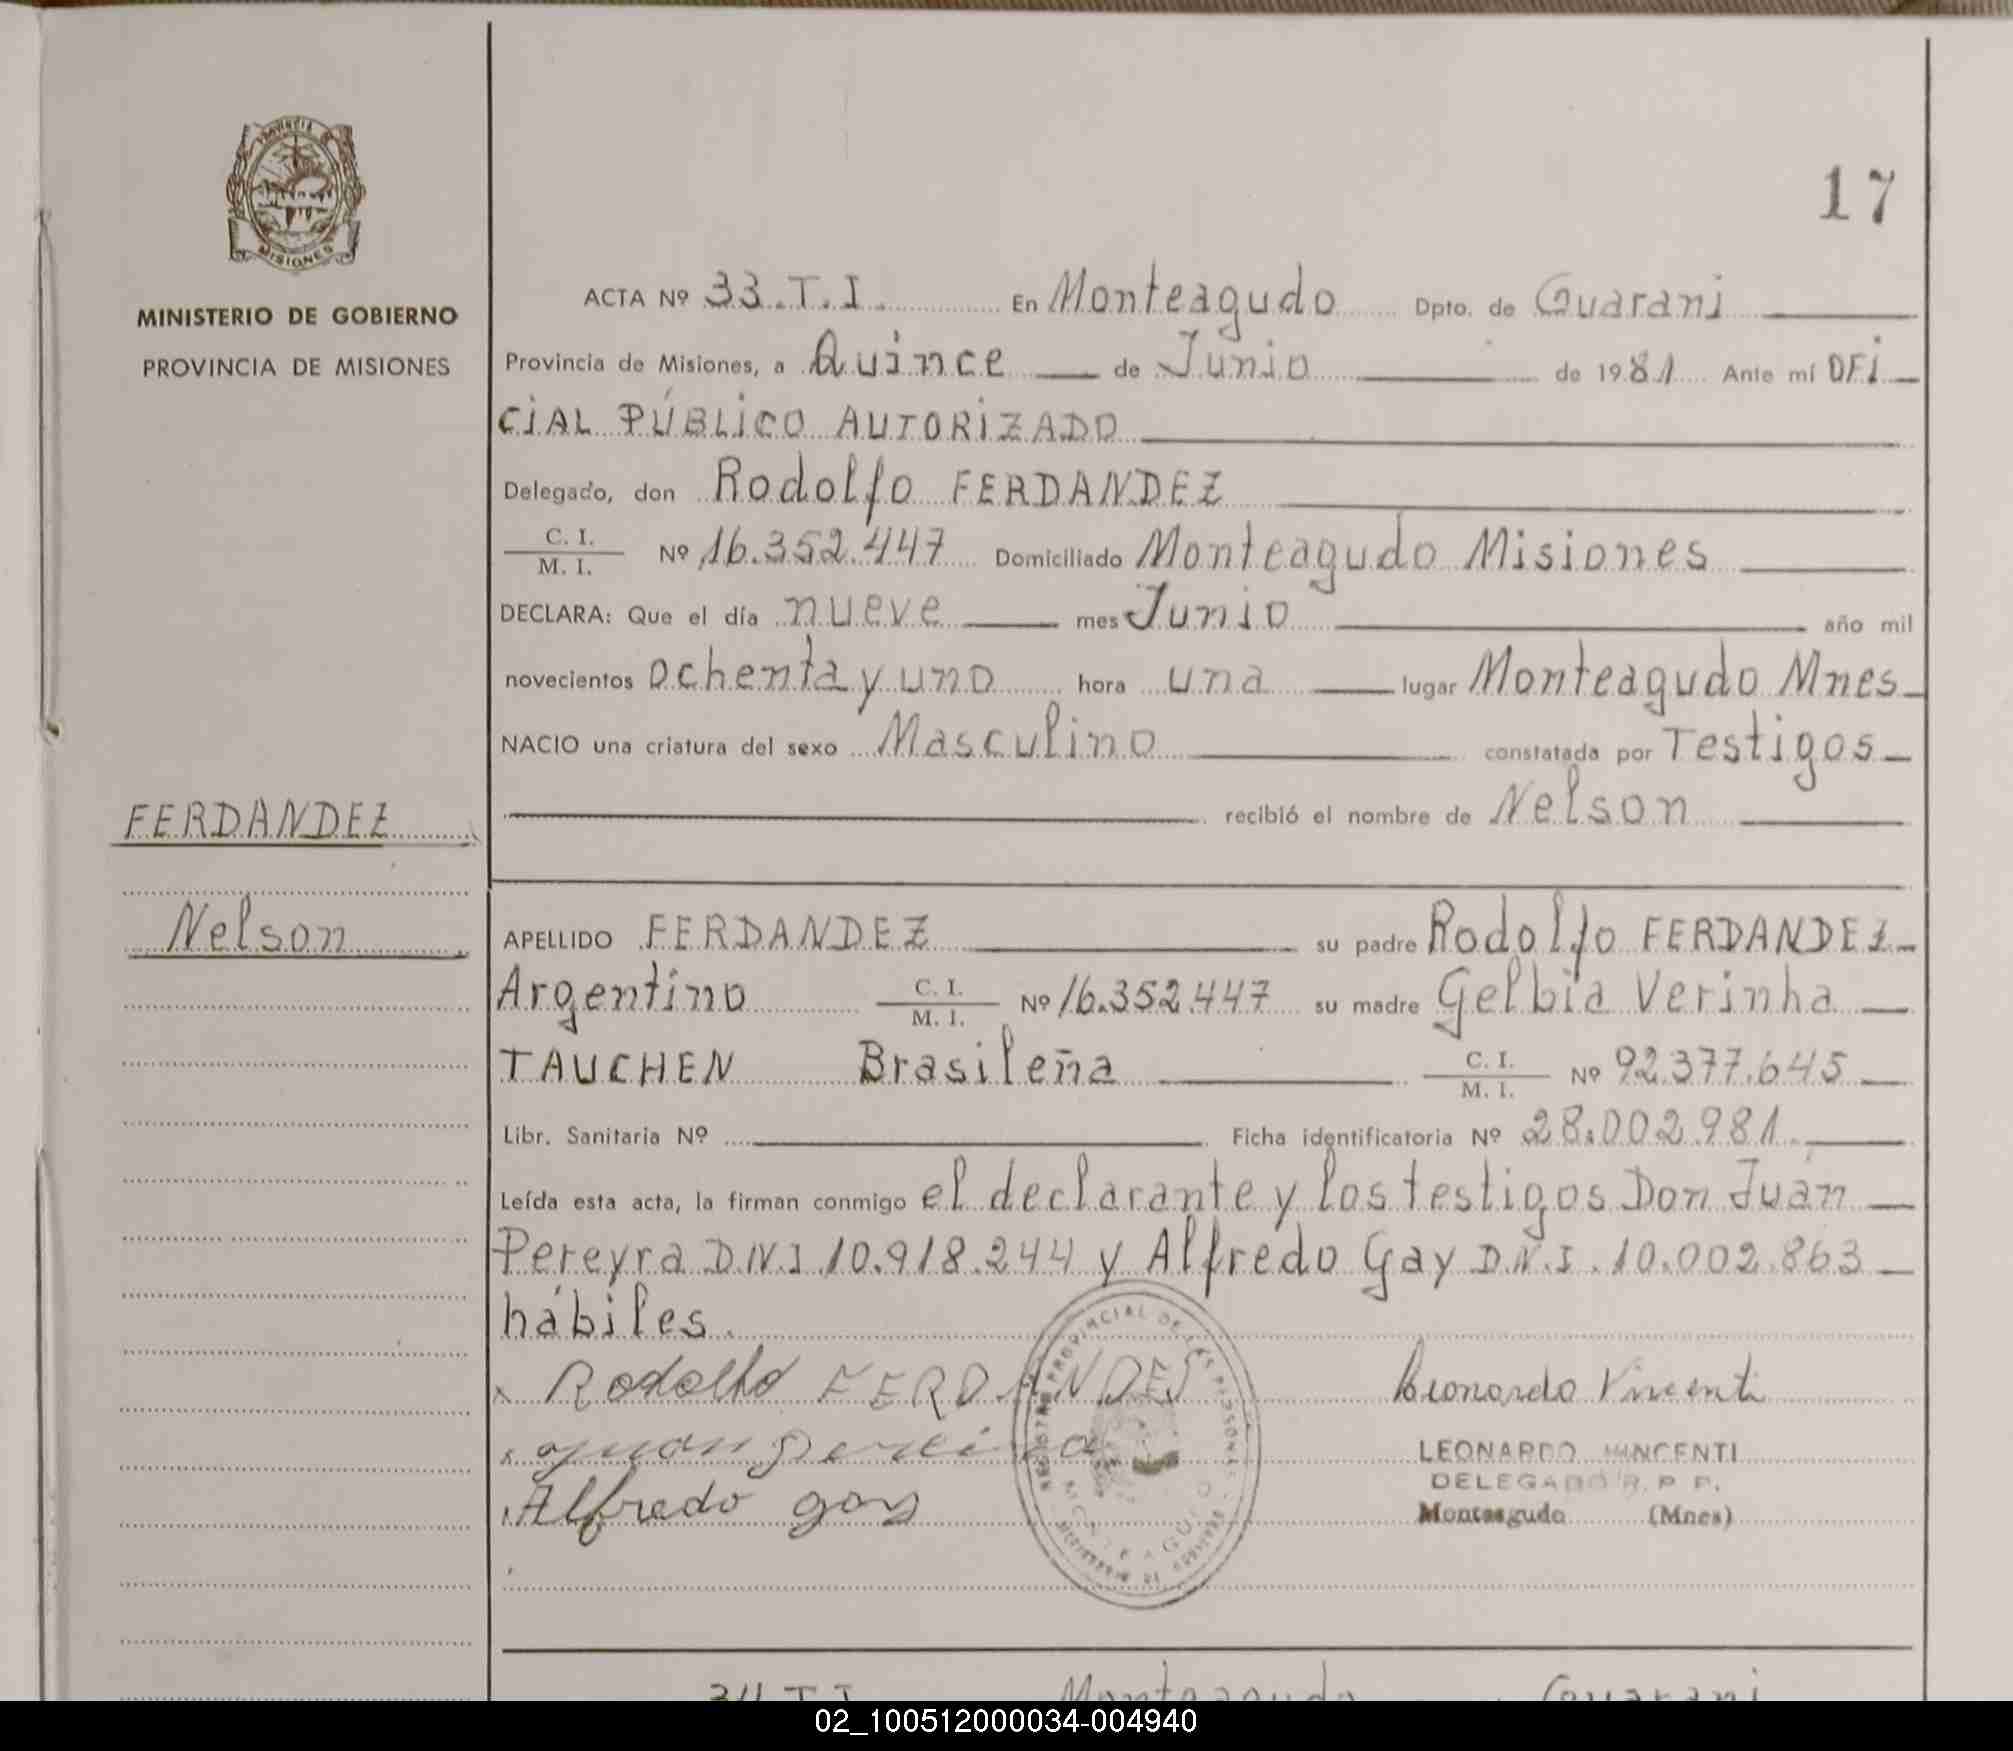 PROVINCIA DE
MISIONES
MINISTERIO DE GOBIERNO
PROVINCIA DE MISIONES
17
ACTA Nº 33.T.I. En Monteagudo Dpto. de Guarani
Provincia de Misiones, a Quince de Junio de 1981 Ante mí OFi
CiAL PÚBLiCO AUTORiZADO
Delegado, don Rodolfo FERDANDEZ
C. I.
M. I. Nº 16.352.447 Domiciliado Monteagudo Misiones
DECLARA: Que el día nueve mes Junio año mil
novecientos Ochenta y uno hora una lugar Monteagudo Mnes
NACIO una criatura del sexo Masculino constatada por Testigos
recibió el nombre de Nelson
FERDANDEZ
Nelson
APELLIDO FERDANDEZ su padre Rodolfo FERDANDEZ
Argentino C. I. M. I. Nº 16.352.447 su madre Gelbia Verinha
TAUCHEN Brasileña C. I. M. I. Nº 92.377.645
Libr. Sanitaria Nº Ficha identificatoria Nº 28.002.981.
Leída esta acta, la firman conmigo el declarante y los testigos Don Juan
Pereyra D.N.I 10.918.244 y Alfredo Gay D.N.I. 10.002.863
hábiles.
x Rodolfo FERDANDES Leonardo Vincenti
juan pereira
Alfredo gay
LEONARDO VINCENTI
DELEGADO R. P. P.
Monteagudo (Mnes)
REGISTRO PROVINCIAL DE LAS PERSONAS
MONTEAGUDO
34 T.I Monteagudo Guarani
02_100512000034-004940